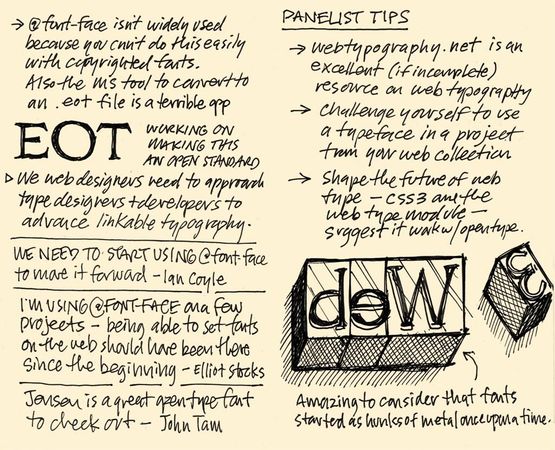 → @font-face isn't widely used
because you can't do this easily
with copyrighted fonts.
Also the MS tool to convert to
an .eot file is a terrible app
EOT
WORKING ON
MAKING THIS
AN OPEN STANDARD
▷ We web designers need to approach
type designers + developers to
advance linkable typography.
WE NEED TO START USING @font-face
to move it forward - Ian Coyle
I'M USING @FONT-FACE on a few
projects - being able to set fonts
on the web should have been there
since the beginning - Elliot Stocks
Jenson is a great opentype font
to check out - John Tam
PANELIST TIPS
→ webtypography.net is an
excellent (if incomplete)
resource on web typography
→ Challenge yourself to use
a typeface in a project
from your web collection
→ Shape the future of web
type - CSS3 and the
web type module -
suggest it work w/opentype.
Web
3
Amazing to consider that fonts
started as hunks of metal once upon a time.